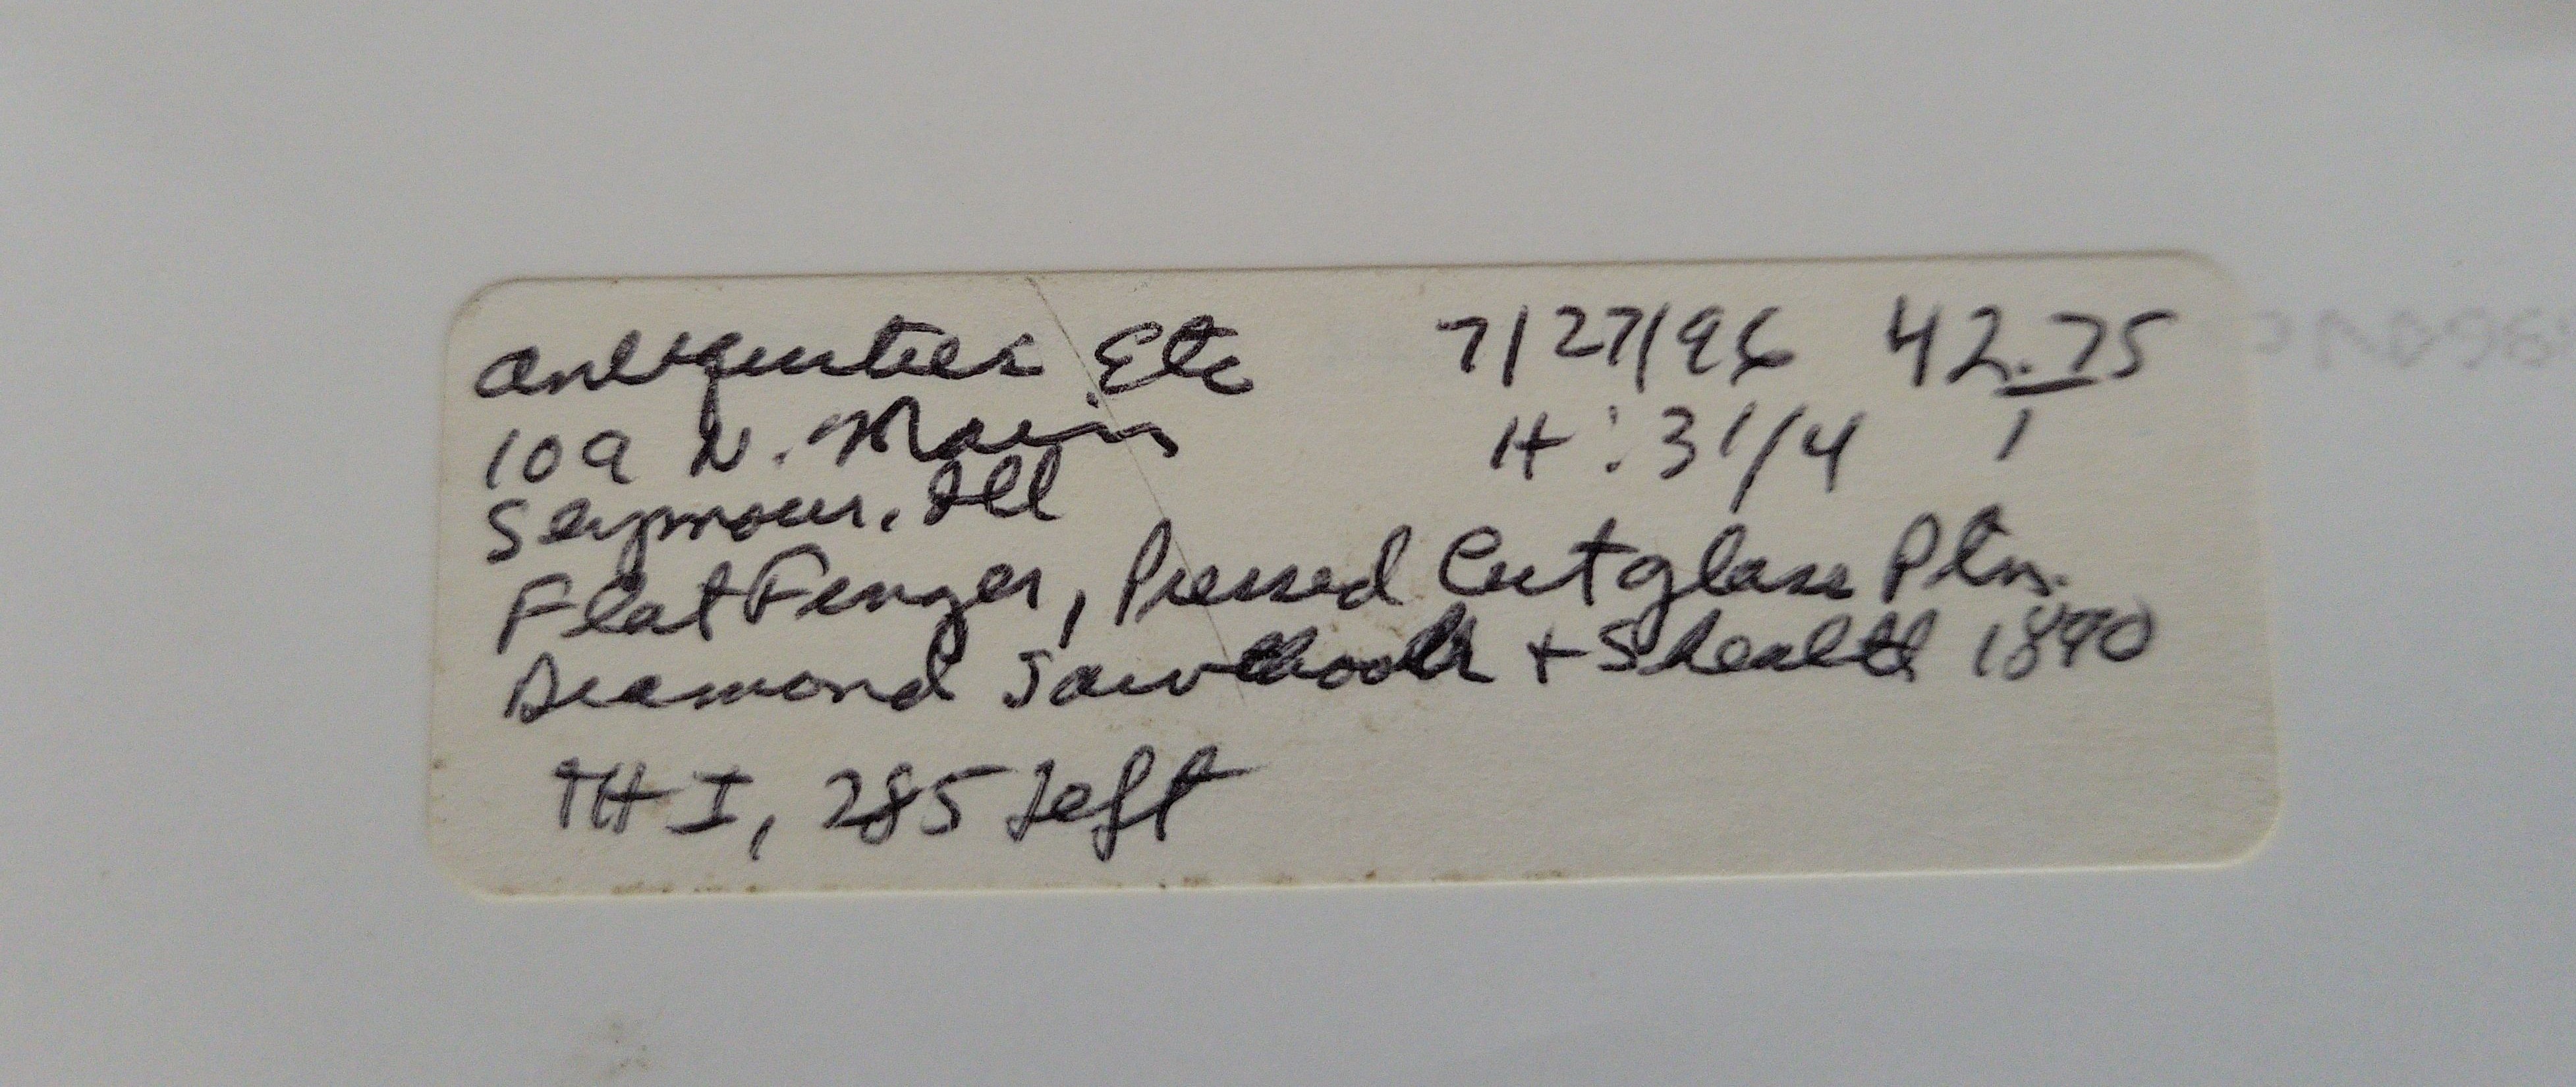 Antiquities Etc 7/27/96 42.75
109 N. Main H: 3 1/4 1
Seymour, Ill
Flat Finger, Pressed Cutglass Ptn.
Diamond Sawthooth + Shealth 1890
TH I, 285 Left